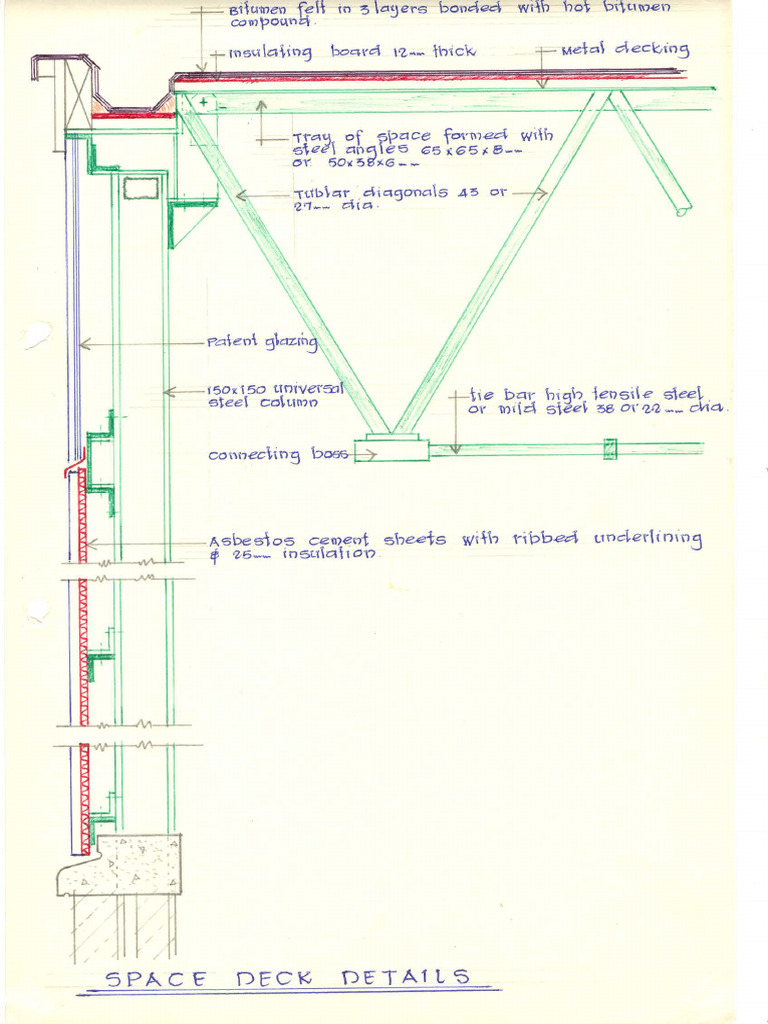 Bitumen felt in 3 layers bonded with hot bitumen
compound.
insulating board 12mm thick
Metal decking
Tray of space formed with
steel angles 65x65x8mm
or 50x38x6mm
Tublar diagonals 43 or
27mm dia.
Patent glazing
150x150 universal
steel column
tie bar high tensile steel
or mild steel 38 or 22mm dia.
connecting boss
Asbestos cement sheets with ribbed underlining
& 25mm insulation
SPACE DECK DETAILS